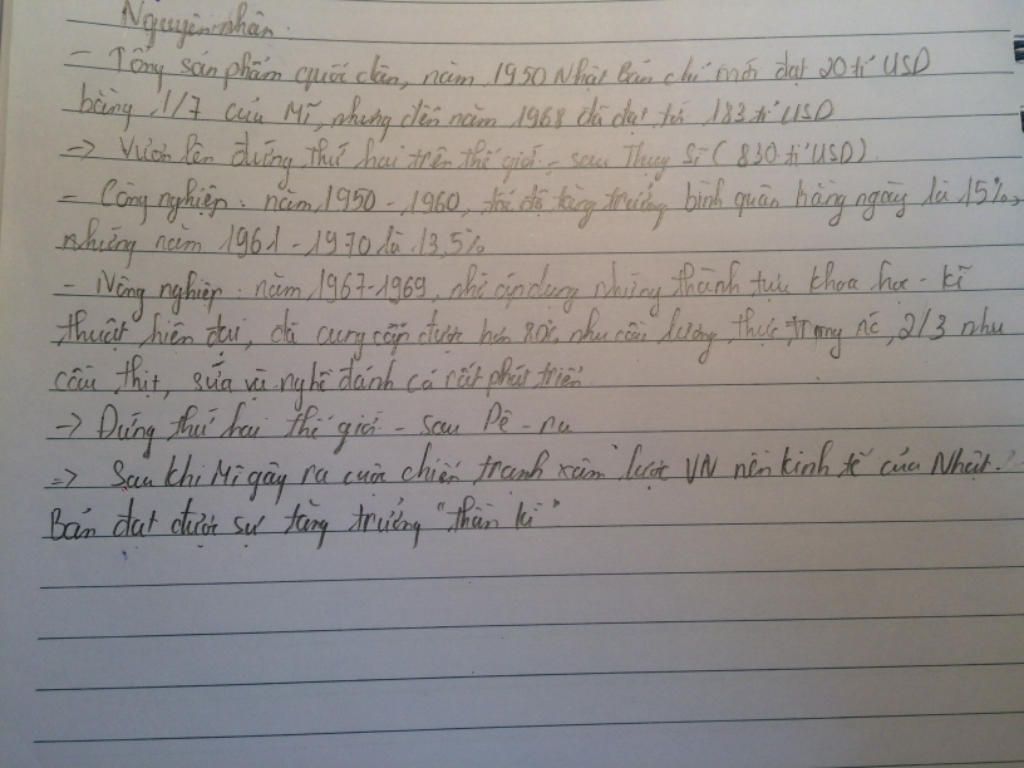 Nguyên nhân.
- Tổng sản phẩm quốc dân, năm 1950 Nhật Bản chỉ mới đạt 20 tỉ USD
bằng 1/7 của Mĩ, nhưng đến năm 1968 đã đạt tới 183 tỉ USD
-> Vươn lên đứng thứ hai trên thế giới - sau Thụy Sĩ (830 tỉ USD)
- Công nghiệp: năm 1950 - 1960, tốc độ tăng trưởng bình quân hằng ngày là 15%,
những năm 1961 - 1970 là 13,5%
- Nông nghiệp: năm 1967-1969, nhờ áp dụng những thành tựu khoa học - kĩ
thuật hiện đại, đã cung cấp được hơn 80% nhu cầu lương thực trong nc, 2/3 nhu
cầu thịt, sữa và nghề đánh cá rất phát triển
-> Đứng thứ hai thế giới - sau Pê-ru
=> Sau khi Mĩ gây ra cuộc chiến tranh xâm lược VN nền kinh tế của Nhật
Bản đạt được sự tăng trưởng "thần kì"